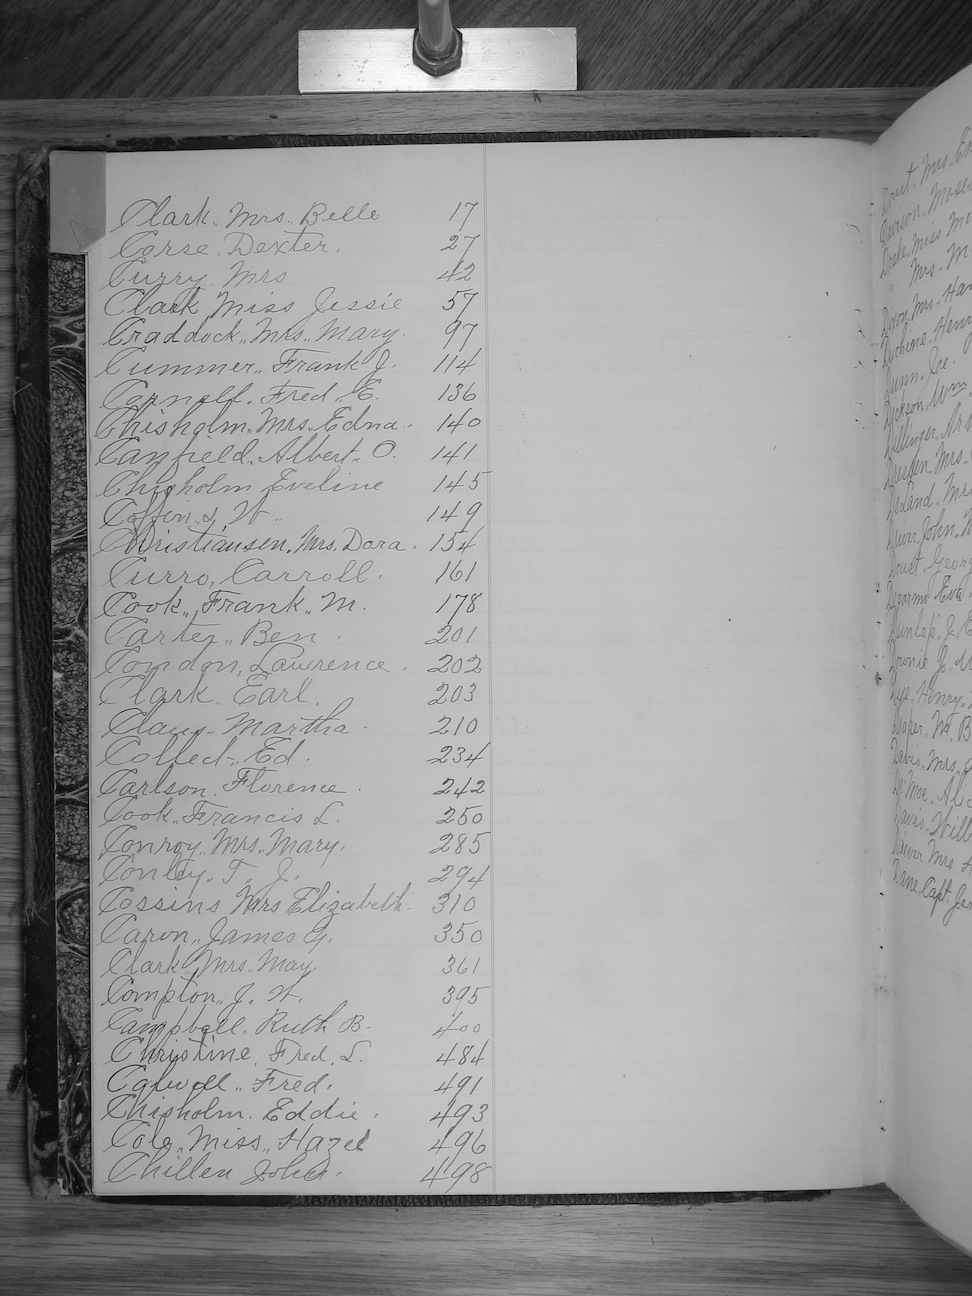 Clark. Mrs. Belle 17
Corse. Dexter. 27
Curry. Mrs 42
Clark, Miss Jessie 57
Craddock. Mrs. Mary. 97
Cummer. Frank J. 114
Carnell. Fred. E. 136
Chisholm. Mrs. Edna. 140
Canfield. Albert. O. 141
Chisholm Eveline 145
Coffin. L. W. 149
Christiansen. Mrs. Dora. 154
Curro, Carroll. 161
Cook, Frank. M. 178
Carter. Ben. 201
Condon, Lawrence. 202
Clark. Earl. 203
Claus. Martha. 210
Colled. Ed. 234
Carlson. Florence. 242
Cook. Francis L. 250
Conroy. Mrs. Mary. 285
Conley. T. J. 294
Cossins Mrs Elizabeth. 310
Caron. James G. 350
Clark Mrs. May. 361
Compton. J. W. 395
Campbell. Ruth B. 400
Christine, Fred. L. 484
Colwell. Fred. 491
Chisholm. Eddie. 493
Cole, Miss. Hazel 496
Chillen John. 498
Doust Mrs.
Davison.
Drake, Miss
" Mrs. M
Dixon, Mrs.
Duchine. Henry
Dunn. Joe.
Dickson, Wm
Dillinger.
Mrs.
DeLand. Mrs
Driver, John.
Doust. George
Eva
Dunlap. J. E
Downie J.
Dye. Henry.
Draper. Wm. B
Davis. Mrs.
De Moe. Alice
Davis. Will
Deever Mrs
Dane, Capt.